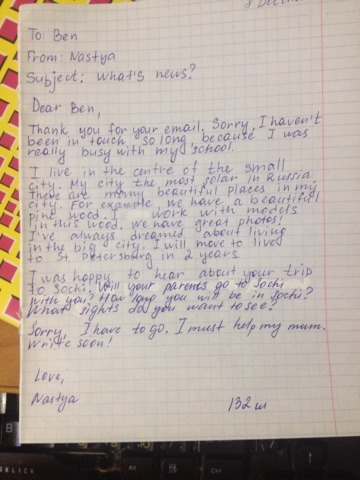 8 Decem
To: Ben
From: Nastya
Subject: What's news?
Dear Ben,
Thank you for your email. Sorry, I haven't
been in touch so long, because I was
really busy with my school.
I live in the centre of the small
city. My city the most solar in Russia
There are many beautiful places in my
city. For example, we have a beautiful
pine wood. I work with models
in this wood. We have great photos!
I've always dreamed about living
in the big city. I will move to live
to St Petersburg in 2 years.
I was happy to hear about your trip
to Sochi. Will your parents go to Sochi
with you? How long you will be in Sochi?
What sights do you want to see?
Sorry, I have to go. I must help my mum.
Write soon!
Love,
Nastya
132 w